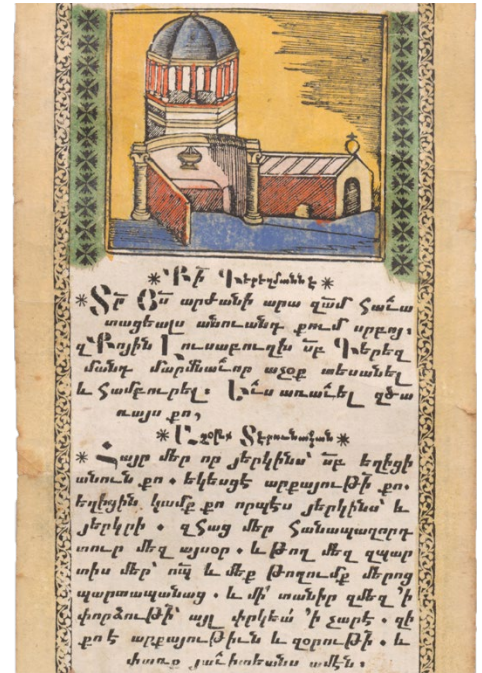 *Քի̃ Գերեզմանն է*
*Տր̃ Յս̃ արժանի արա զա̃մ հաւա
տացեալս անուանդ քում սրբոյ։
զՔոյին Լուսաբուղխ սբ̃ Գերեզ
մանդ մարմնաւոր աչօք տեսանել
և համբուրել։ Եւս առաւել զծա
ռայս քո,
*Աղօթք Տէրունական*
*Հայր մեր որ յերկինս՝ սբ̃ եղիցի
անուն քո. եկեսցէ արքայութի̃ քո.
եղիցին կամք քո որպէս յերկինս՝ և
յերկրի. զհաց մեր հանապազորդ
տուր մեզ այսօր. և թող մեզ զպար
տիս մեր՝ որպ̃ և մեք թողումք մերոց
պարտապանաց. և մի՛ տանիր զմեզ ՚ի
փորձութի̃՝ այլ փրկեա՛ ՚ի չարէ. զի
քո է արքայութիւն և զօրութի̃. և
փառք յաւիտեանս ամէն։